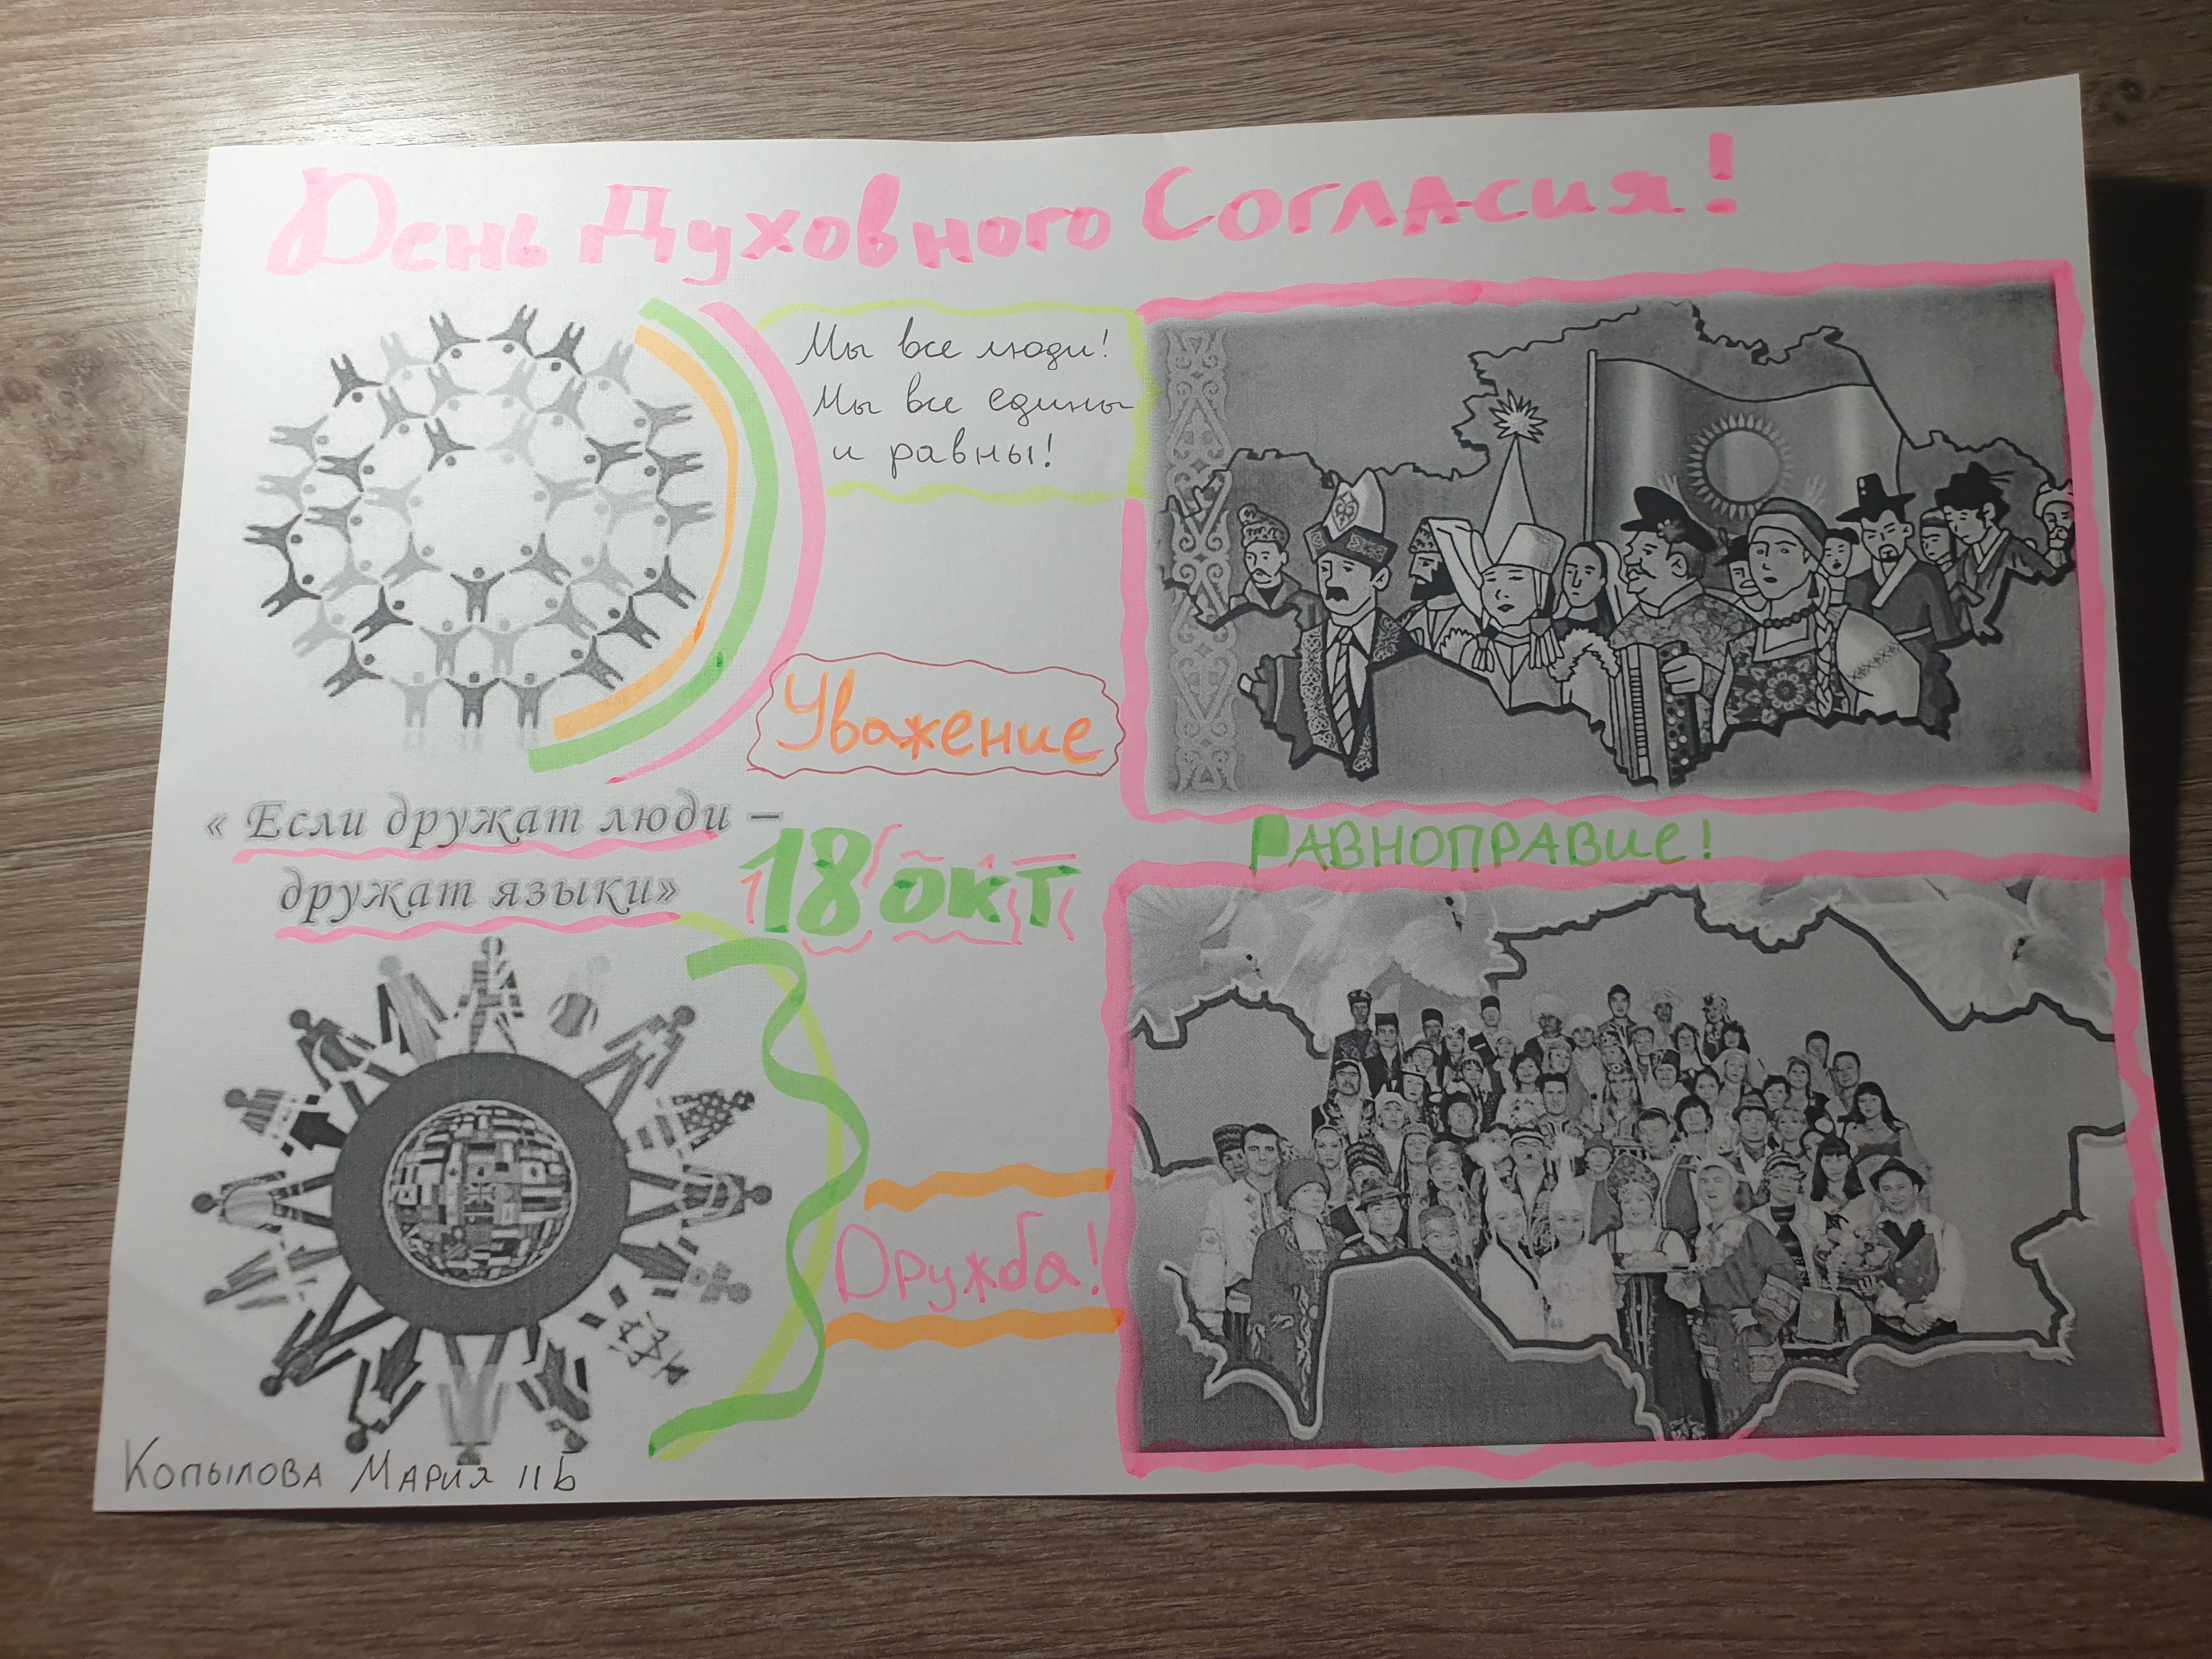 День Духовного Согласия!
Мы все люди!
Мы все едины
и равны!
Уважение
« Если дружат люди –
дружат языки»
18 окт
Равноправие!
Дружба!
Копылова Мария 11Б